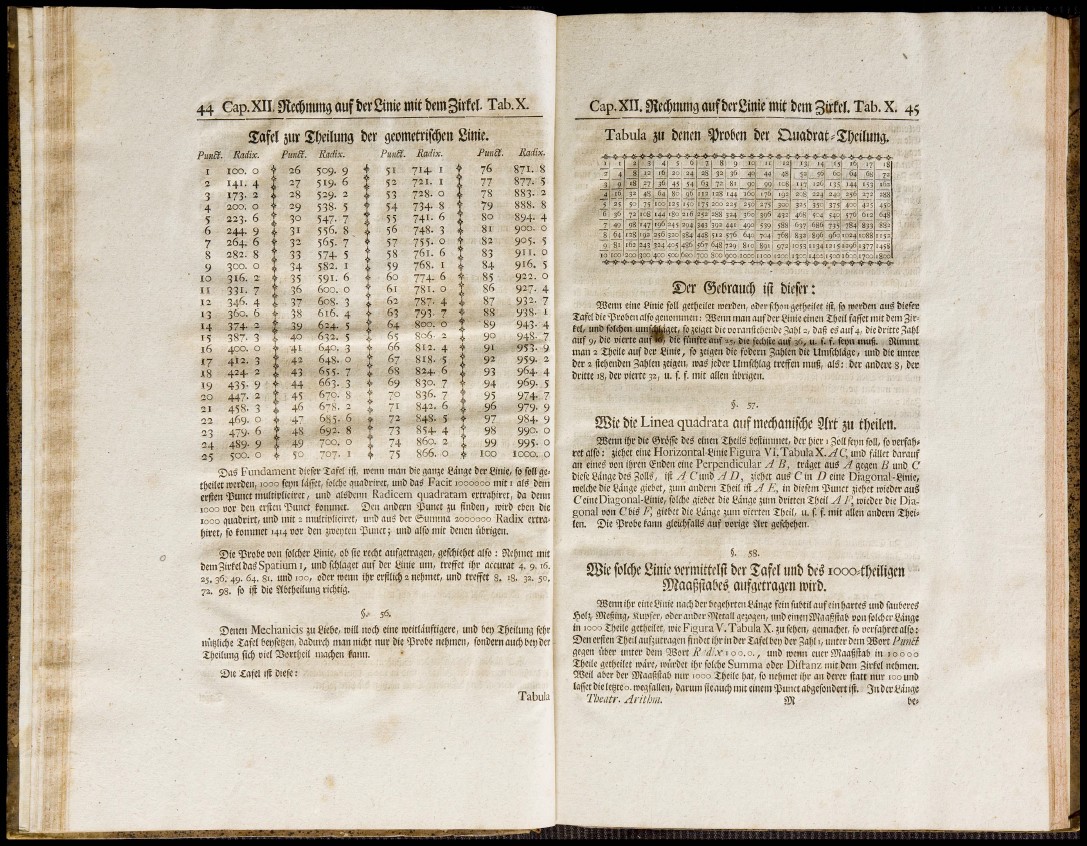 44 Cap. XII. Rechnung auf der Linie mit dem Zirkel. Tab. X.
Tafel zur Theilung der geometrischen Linie.
Punct. Radix. Punct. Radix. Punct. Radix. Punct. Radix.
1 100. 0 26 509. 9 51 714. 1 76 871. 8
2 141. 4 27 519. 6 52 721. 1 77 877. 5
3 173. 2 28 529. 2 53 728. 0 78 883. 2
4 200. 0 29 538. 5 54 734. 8 79 888. 8
5 223. 6 30 547. 7 55 741. 6 80 894. 4
6 244. 9 31 556. 8 56 748. 3 81 900. 0
7 264. 6 32 565. 7 57 755. 0 82 905. 5
8 282. 8 33 574. 5 58 761. 6 83 911. 0
9 300. 0 34 582. 1 59 768. 1 84 916. 5
10 316. 2 35 591. 6 60 774. 6 85 922. 0
11 331. 7 36 600. 0 61 781. 0 86 927. 4
12 346. 4 37 608. 3 62 787. 4 87 932. 7
13 360. 6 38 616. 4 63 793. 7 88 938. 1
14 374. 2 39 624. 5 64 800. 0 89 943. 4
15 387. 3 40 632. 5 65 806. 2 90 948. 7
16 400. 0 41 640. 3 66 812. 4 91 953. 9
17 412. 3 42 648. 0 67 818. 5 92 959. 2
18 424. 2 43 655. 7 68 824. 6 93 964. 4
19 435. 9 44 663. 3 69 830. 7 94 969. 5
20 447. 2 45 670. 8 70 836. 7 95 974. 7
21 458. 3 46 678. 2 71 842. 6 96 979. 9
22 469. 0 47 685. 6 72 848. 5 97 984. 9
23 479. 6 48 692. 8 73 854. 4 98 990. 0
24 489. 9 49 700. 0 74 860. 2 99 995. 0
25 500. 0 50 707. 1 75 866. 0 100 1000. 0
Das Fundament dieser Tafel ist, wenn man die ganze Länge der Linie, so soll ge-
theilet werden, 1000 seyn lässet, solche quadriret, und das Facit 1000000 mit 1 als dem
ersten Punct multipliciret, und alsdenn Radicem quadratam extrahiret, da denn
1000 vor den ersten Punct kommet. Den andern Punct zu finden, wird eben die
1000 quadrirt, und mit 2 multipliciret, und aus der Summa 2000000 Radix extra-
hiret, so kommet 1414 vor den zweyten Punct; und also mit denen übrigen.
Die Probe von solcher Linie, ob sie recht aufgetragen, geschiehet also: Nehmet mit
dem Zirkel das Spatium 1, und schlaget auf der Linie um, treffet ihr accurat 4. 9. 16.
25. 36. 49. 64. 81. und 100, oder wenn ihr erstlich 2 nehmet, und treffet 8. 18. 32. 50.
72. 98. so ist die Abtheilung richtig.
§. 56.
Denen Mechanicis zu Liebe, will noch eine weitläuftigere, und bey Theilung sehr
nützliche Tafel beysetzen, dadurch man nicht nur die Probe nehmen, sondern auch bey der
Theilung sich viel Vortheil machen kann.
Die Tafel ist diese:
Tabula
Cap. XII. Rechnung auf der Linie mit dem Zirkel. Tab. X. 45
Tabula zu denen Proben der Quadrat-Theilung.
1 1 2 3 4 5 6 7 8 9 10 11 12 13 14 15 16 17 18
2 4 8 12 16 20 24 28 32 36 40 44 48 52 56 60 64 68 72
3 9 18 27 36 45 54 63 72 81 90 99 108 117 126 135 144 153 162
4 16 32 48 64 80 96 112 128 144 160 176 192 208 224 240 256 272 288
5 25 50 75 100 125 150 175 200 225 250 275 300 325 350 375 400 425 450
6 36 72 108 144 180 216 252 288 324 360 396 432 468 504 540 576 612 648
7 49 98 147 196 245 294 343 392 441 490 539 588 637 686 735 784 833 882
8 64 128 192 256 320 384 448 512 576 640 704 768 832 896 960 1024 1088 1152
9 81 162 243 324 405 486 567 648 729 810 891 972 1053 1134 1215 1296 1377 1458
10 100 200 300 400 500 600 700 800 900 1000 1100 1200 1300 1400 1500 1600 1700 1800
Der Gebrauch ist dieser:
Wenn eine Linie soll getheilet werden, oder schon getheilet ist, so werden aus dieser
Tafel die Proben also genommen: Wenn man auf der Linie einen Theil fasset mit dem Zir-
kel, und solchen umschläget, so zeiget die voranstehende Zahl 2, daß es auf 4, die dritte Zahl
auf 9, die vierte auf die fünfte auf 25, die sechste auf 36, u. s. f. seyn muß. Nimmt
man 2 Theile auf der Linie, so zeigen die fodern Zahlen die Umschläge, und die unter
der 2 stehenden Zahlen zeigen, was jeder Umschlag treffen muß, als: der andere 8, der
dritte 18, der vierte 32, u. s. f. mit allen übrigen.
§. 57.
Wie die Linea quadrata auf mechanische Art zu theilen.
Wenn ihr die Grösse des einen Theils bestimmet, der hier 1 Zoll seyn soll, so verfah-
ret also: ziehet eine Horizontal-Linie Figura VI. Tabula X. A C, und fället darauf
an eines von ihren Enden eine Perpendicular A B, träget aus A gegen B und C
diese Länge des Zolls, ist A C und A D, ziehet aus C in D eine Diagonal-Linie,
welche die Länge giebet, zum andern Theil ist A E, in diesem Punct ziehet wieder aus
C eine Diagonal-Linie, solche giebet die Länge zum dritten Theil A F, wieder die Dia-
gonal von C bis F, giebet die Länge zum vierten Theil, u. s. f. mit allen andern Thei-
len. Die Probe kann gleichfalls auf vorige Art geschehen.
§. 58.
Wie solche Linie vermittelst der Tafel und des 1000-theiligen
Maaßstabes aufgetragen wird.
Wenn ihr eine Linie nach der begehrten Länge fein subtil auf ein hartes und sauberes
Holz, Meßing, Kupfer, oder ander Metall gezogen, und einen Maaßstab von solcher Länge
in 1000 Theile getheilet, wie Figura V. Tabula X. zu sehen, gemachet, so verfahret also:
Den ersten Theil aufzutragen findet ihr in der Tafel bey der Zahl 1, unter dem Wort Punct
gegen über unter dem Wort Radix 100.0., und wenn euer Maaßstab in 10000
Theile getheilet wäre, würdet ihr solche Summa oder Distanz mit dem Zirkel nehmen.
Weil aber der Maaßstab nur 1000 Theile hat, so nehmet ihr an derer statt nur 100 und
lasset die letzte 0. wegfallen, darum sie auch mit einem Punct abgesondert ist. In der Länge
Theatr. Arithm. M be-